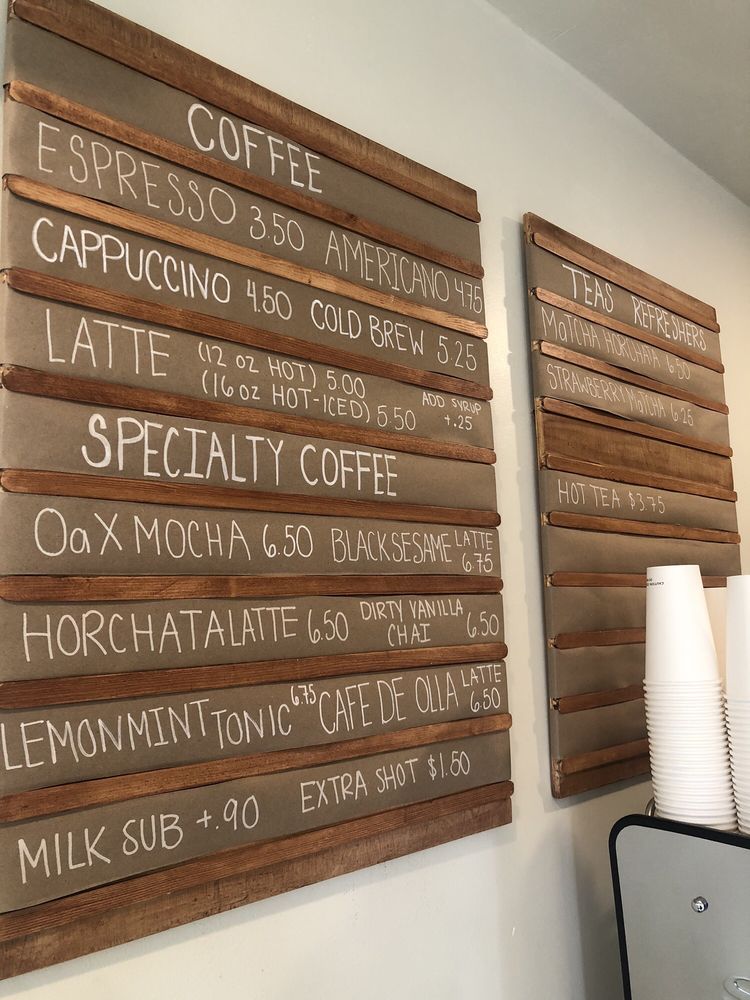 COFFEE
ESPRESSO 3.50 AMERICANO 4.75
CAPPUCCINO 4.50 COLD BREW 5.25
LATTE (12 oz HOT) 5.00
(16 oz HOT-ICED) 5.50 ADD SYRUP +.25
SPECIALTY COFFEE
OaX MOCHA 6.50 BLACK SESAME LATTE 6.75
HORCHATA LATTE 6.50 DIRTY VANILLA CHAI 6.50
LEMON MINT TONIC 6.75 CAFE DE OLLA LATTE 6.50
MILK SUB +.90 EXTRA SHOT $1.50
TEAS REFRESHERS
MaTCHA HORCHATA 6.50
STRAWBERRY MaTCHA 6.25
HOT TEA $3.75